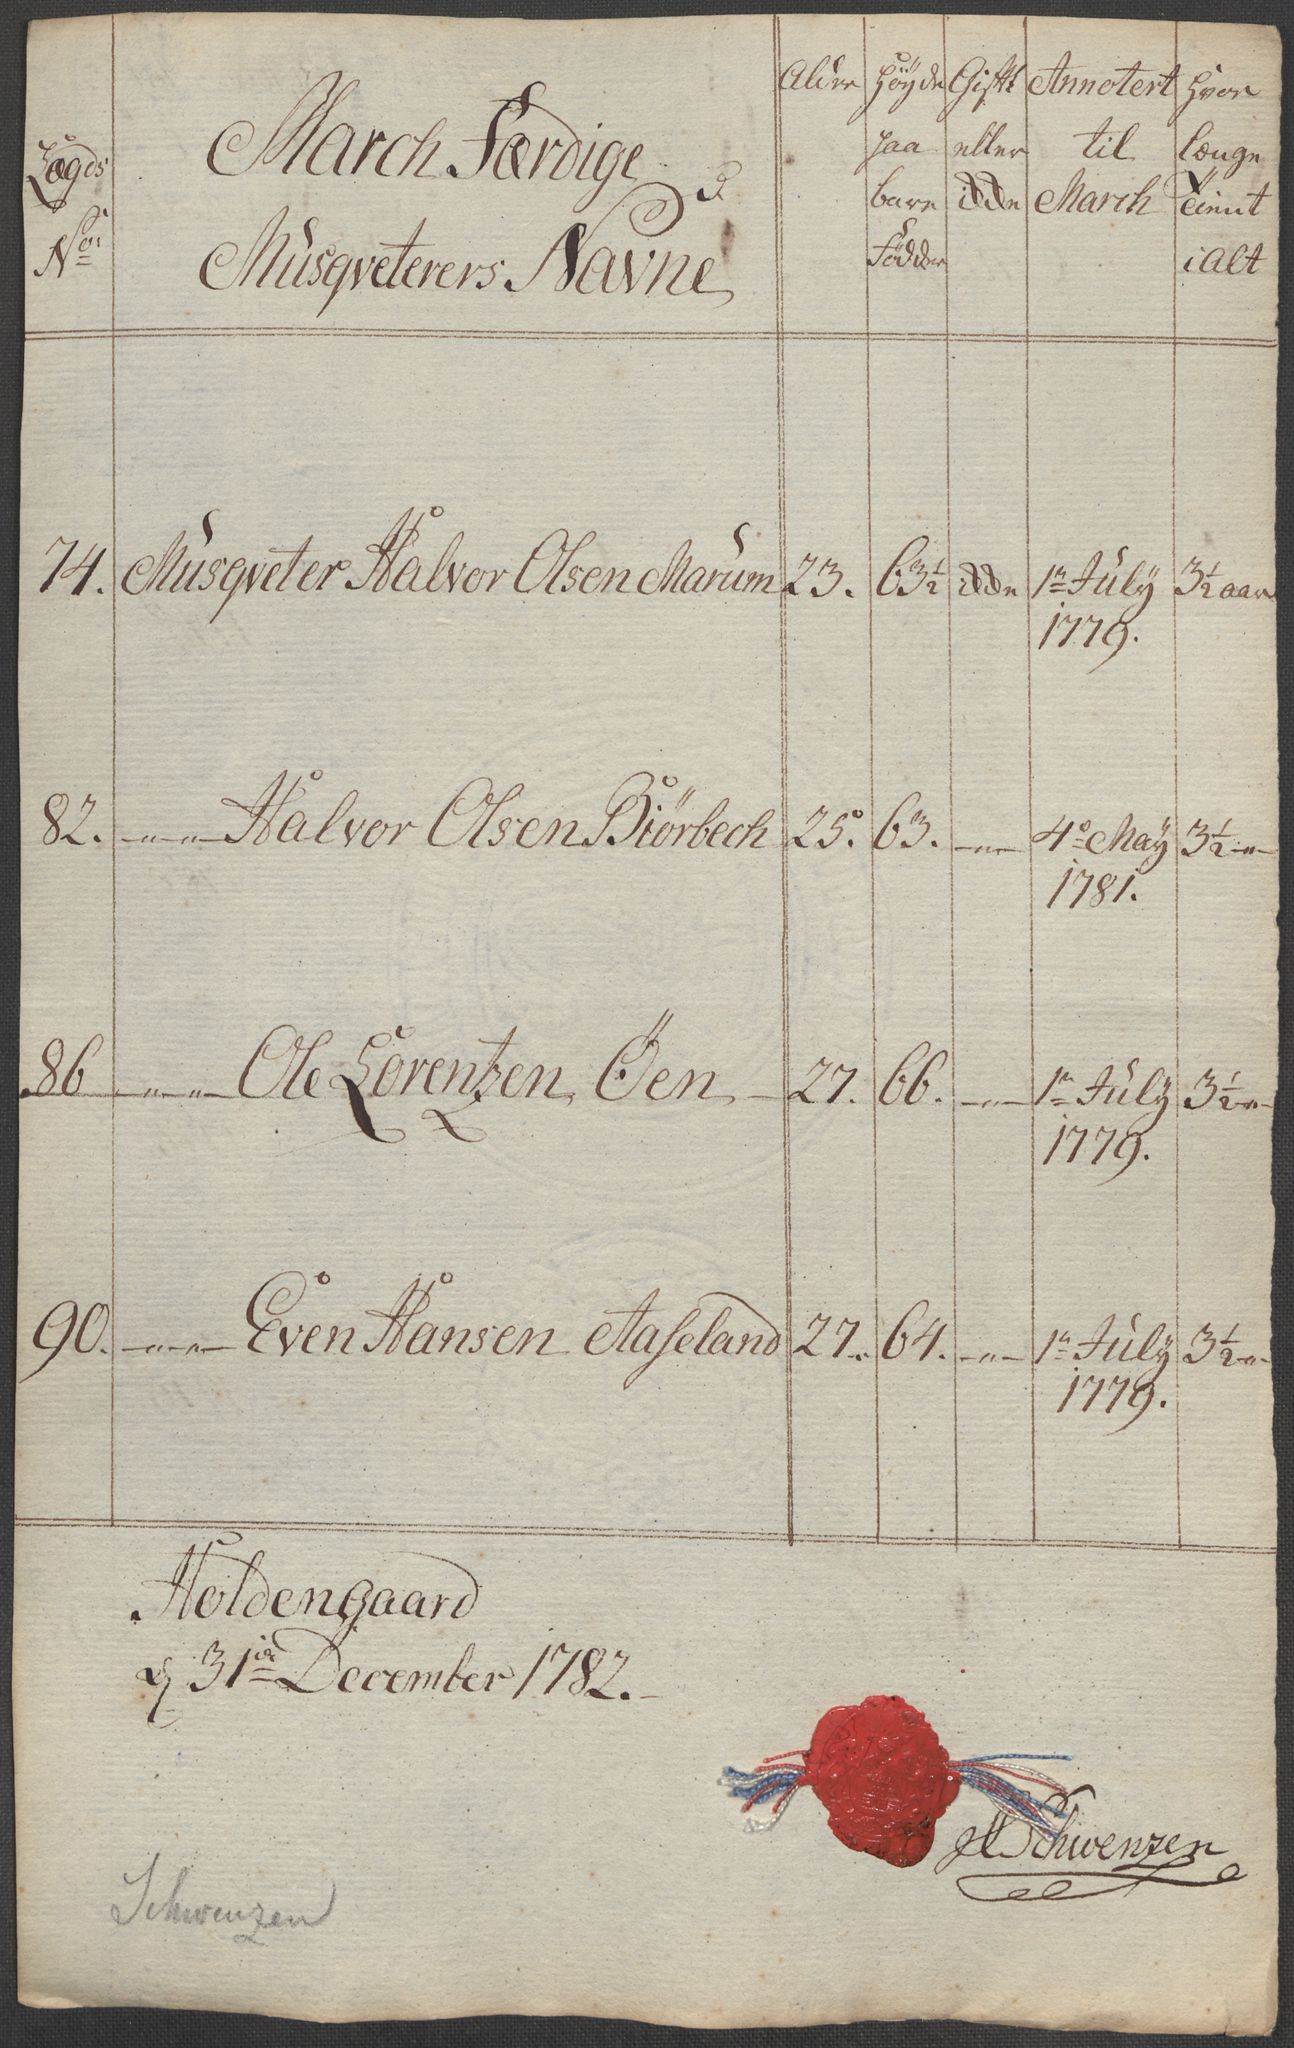 Lægds No: | March Færdige Musqveterers Navne | Alder | Høyde paa bare Födder | Gift eller idde | Annotert til March | Hvor længe tient i Alt
74. Musqveter Halvor Olsen Marum 23. 63½ idde 1te July 1779. 3½ aar
82. —"—"— Halvor Olsen Biörbech 25. 63. —"— 4de May 1781. 3½ —"—
86 —"—"— Ole Lorentzen Öen — 27. 66. —"— 1te July 1779. 3½ —"—
90. —"—"— Even Hansen Aaseland 27. 64. —"— 1te July 1779. 3½ —"—
Holdengaard
d 31te December 1782.
Schwenzen
Schwenzen